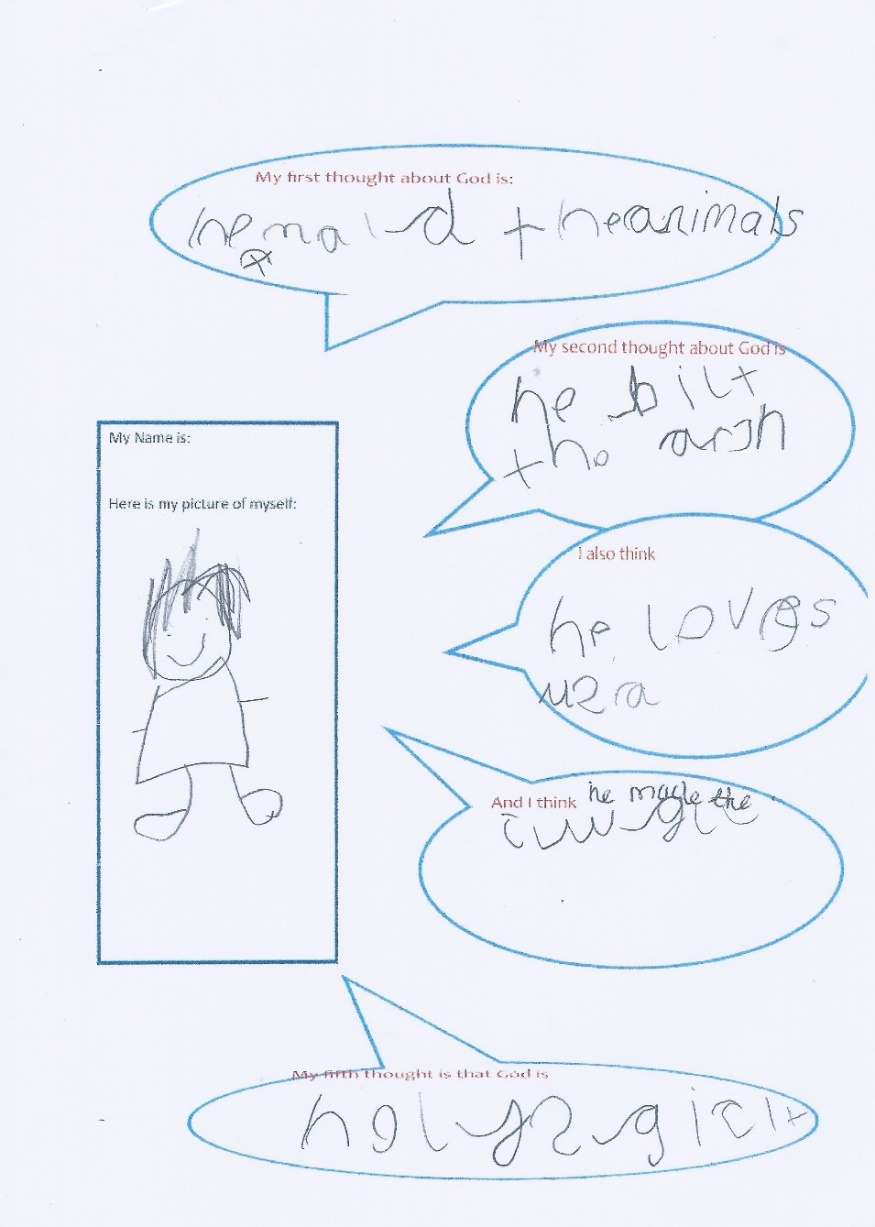 My first thought about God is:
he maid the animals
My second thought about God is
he bilt
the arsh
My Name is:
Here is my picture of myself:
I also think
he loves
And I think he made the
My fifth thought is that God is
holy